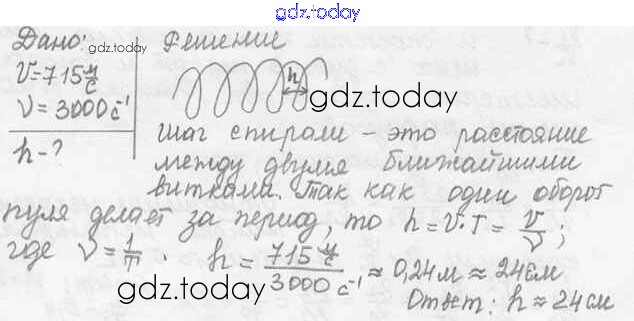 gdz.today
Дано:
gdz.today
Решение
V=715 м/с
ν=3000 с⁻¹
h-?
h
gdz.today
Шаг спирали – это расстояние
между двумя ближайшими
витками. Так как один оборот
пуля делает за период, то h=V·T=V/ν;
где ν=1/T. h=715 м/с / 3000 с⁻¹ ≈ 0,24м ≈ 24см
gdz.today
Ответ: h≈24см